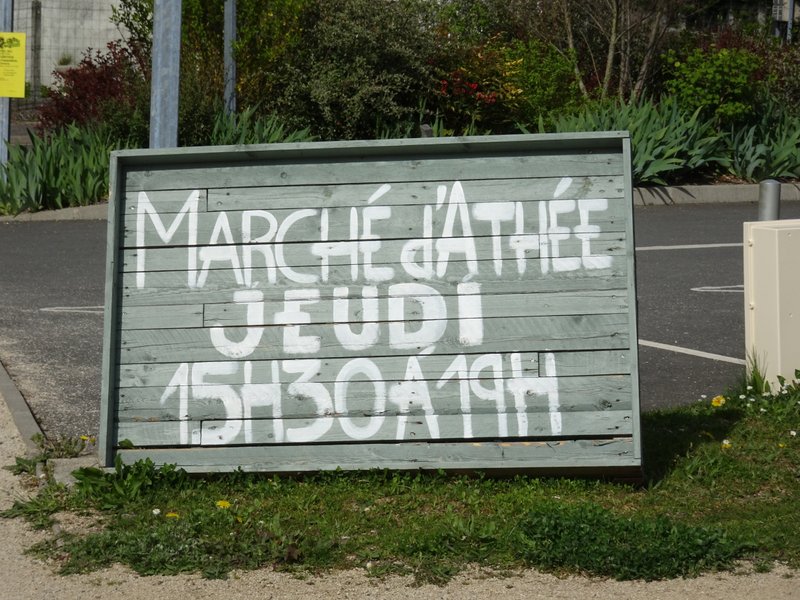 MARCHÉ d'ATHÉE
JEUDI
15H30 À 19H